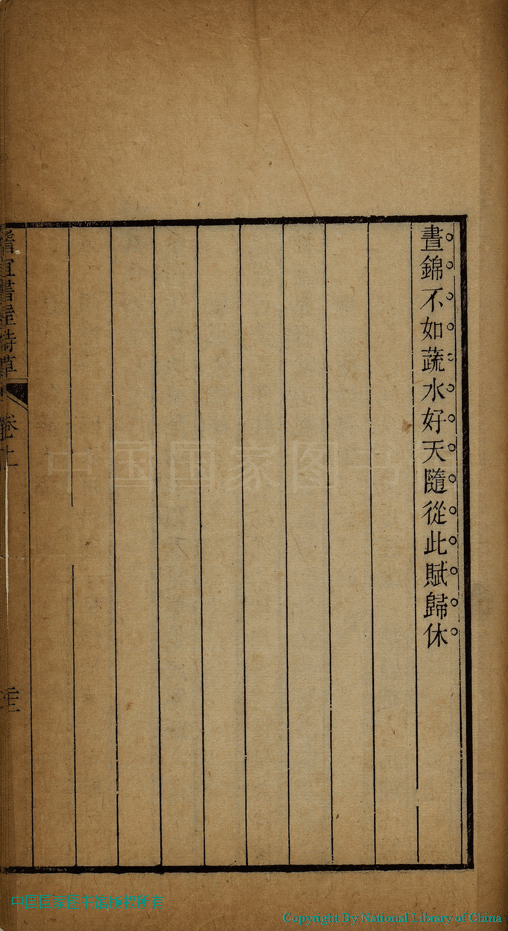 晝錦不如蔬水好天隨從此賦歸休
書屋詩草
卷十
中国国家图书
Copyright By National Library of China